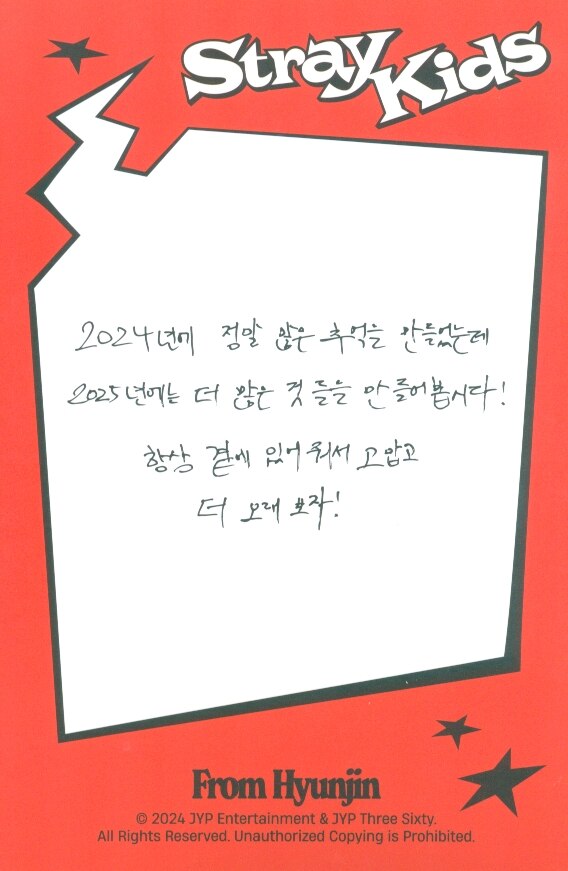 Stray Kids
2024년에 정말 많은 추억을 만들었는데
2025년에는 더 많은 것들을 만들어봅시다!
항상 곁에 있어줘서 고맙고
더 오래 보자!
From Hyunjin
© 2024 JYP Entertainment & JYP Three Sixty.
All Rights Reserved. Unauthorized Copying is Prohibited.